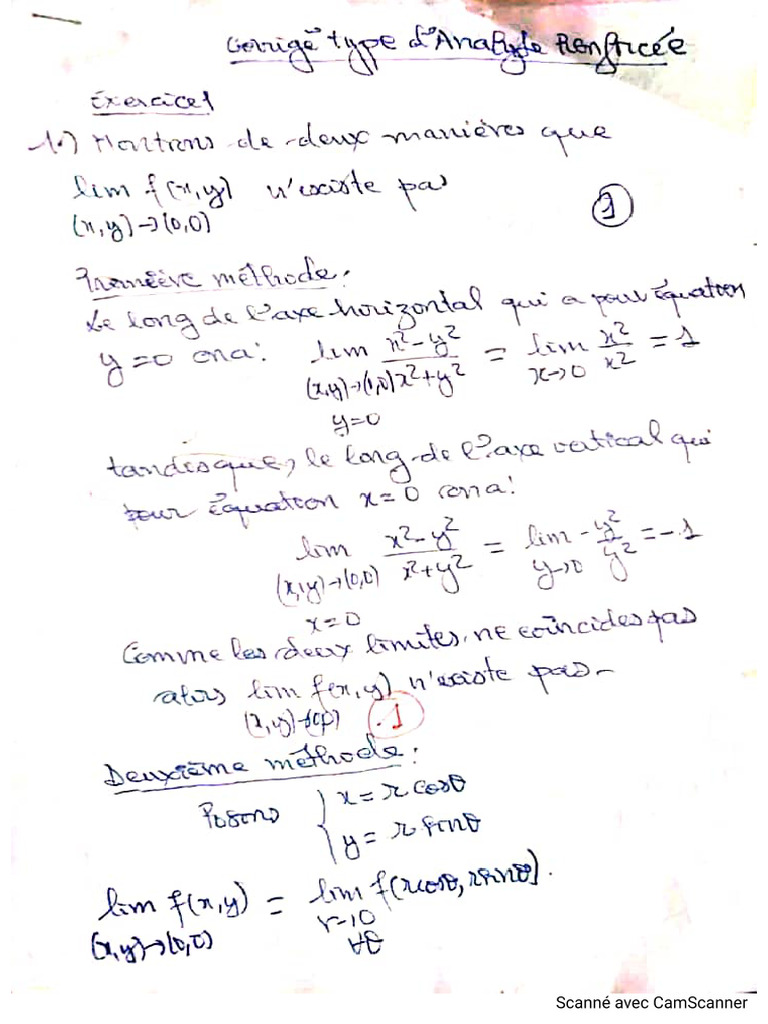 Corrigé type d'Analyse Renforcée
Exercice 1
1.) Montrons de deux manières que
lim f(x,y) n'existe pas
(x,y)→(0,0)
1
Première méthode:
Le long de l'axe horizontal qui a pour équation
y=0 ona: lim x²-y² / x²+y² = lim x²/x² = 1
(x,y)→(0,0) x→0
y=0
tandisque, le long de l'axe vertical qui
pour équation x=0 ona:
lim x²-y² / x²+y² = lim -y²/y² = -1
(x,y)→(0,0) y→0
x=0
Comme les deux limites ne coïncides pas
alors lim f(x,y) n'existe pas-
(x,y)→(0,0) 1
Deuxième méthode:
Posons { x = r cosθ
y = r sinθ
lim f(x,y) = lim f(rcosθ, rsinθ).
(x,y)→(0,0) r→0
∀θ
Scanné avec CamScanner